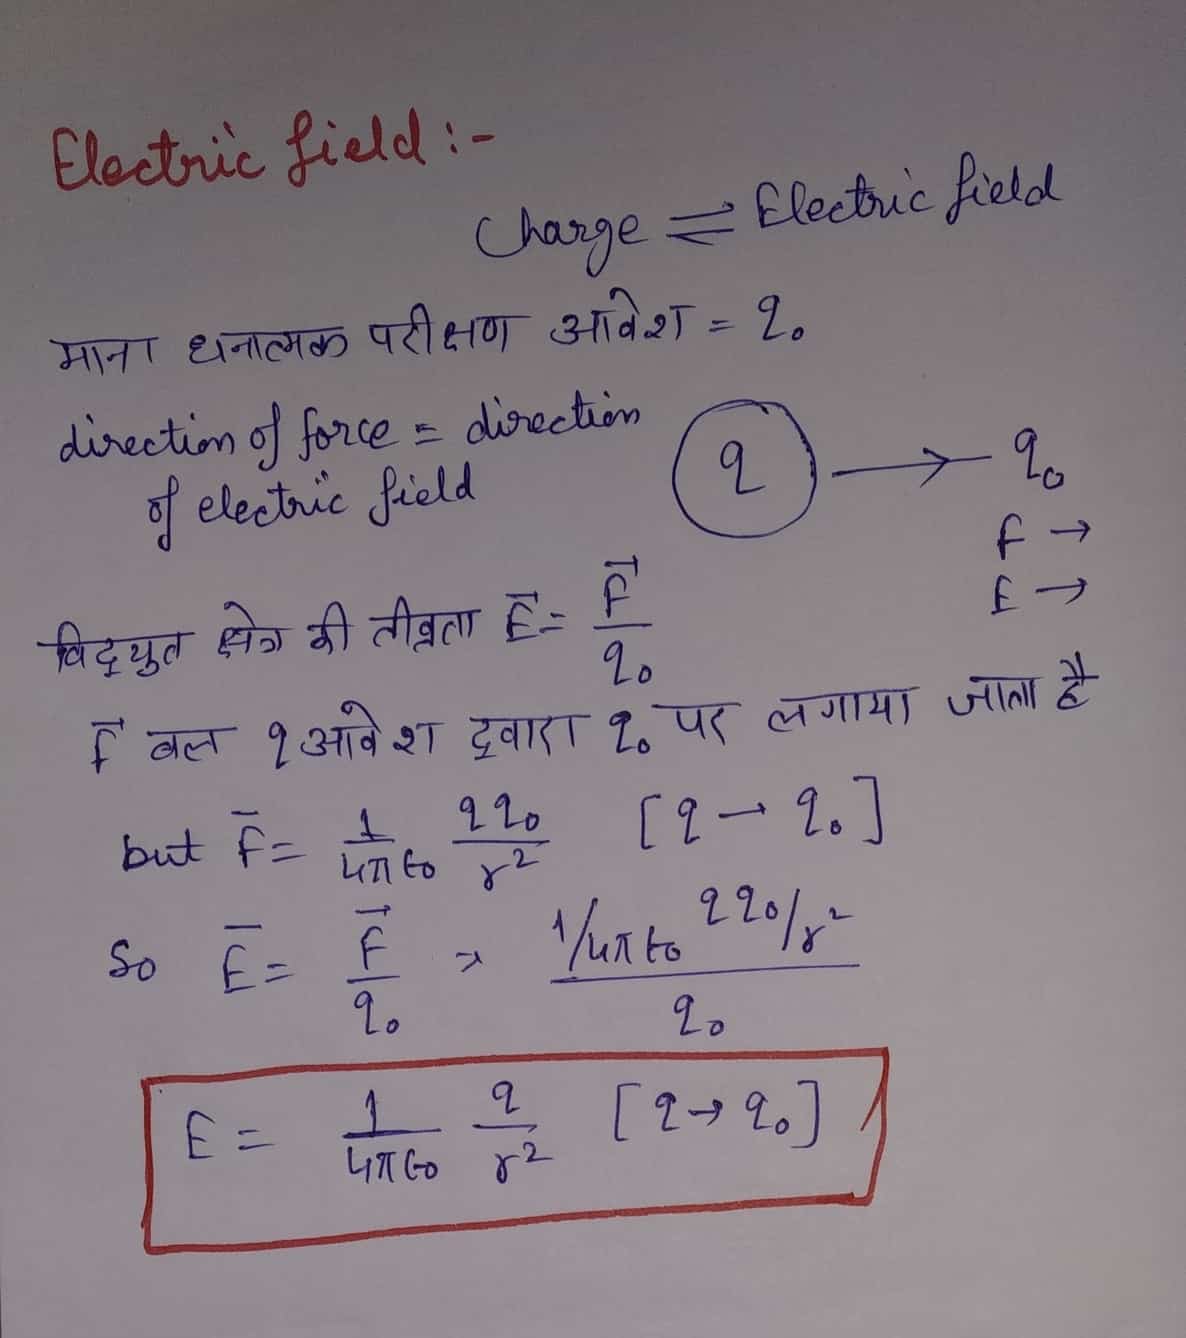 Electric field :-
Charge ⇌ Electric field
माना धनात्मक परीक्षण आवेश = q₀
direction of force = direction
of electric field
q → q₀
F →
E →
विद्युत क्षेत्र की तीव्रता E⃗ = F⃗/q₀
F⃗ बल q आवेश द्वारा q₀ पर लगाया जाता है
but F̄ = 1/4πϵ₀ qq₀/r² [q → q₀]
So Ē = F⃗/q₀ → (1/4πϵ₀ qq₀/r²)/q₀
E = 1/4πϵ₀ q/r² [q → q₀]